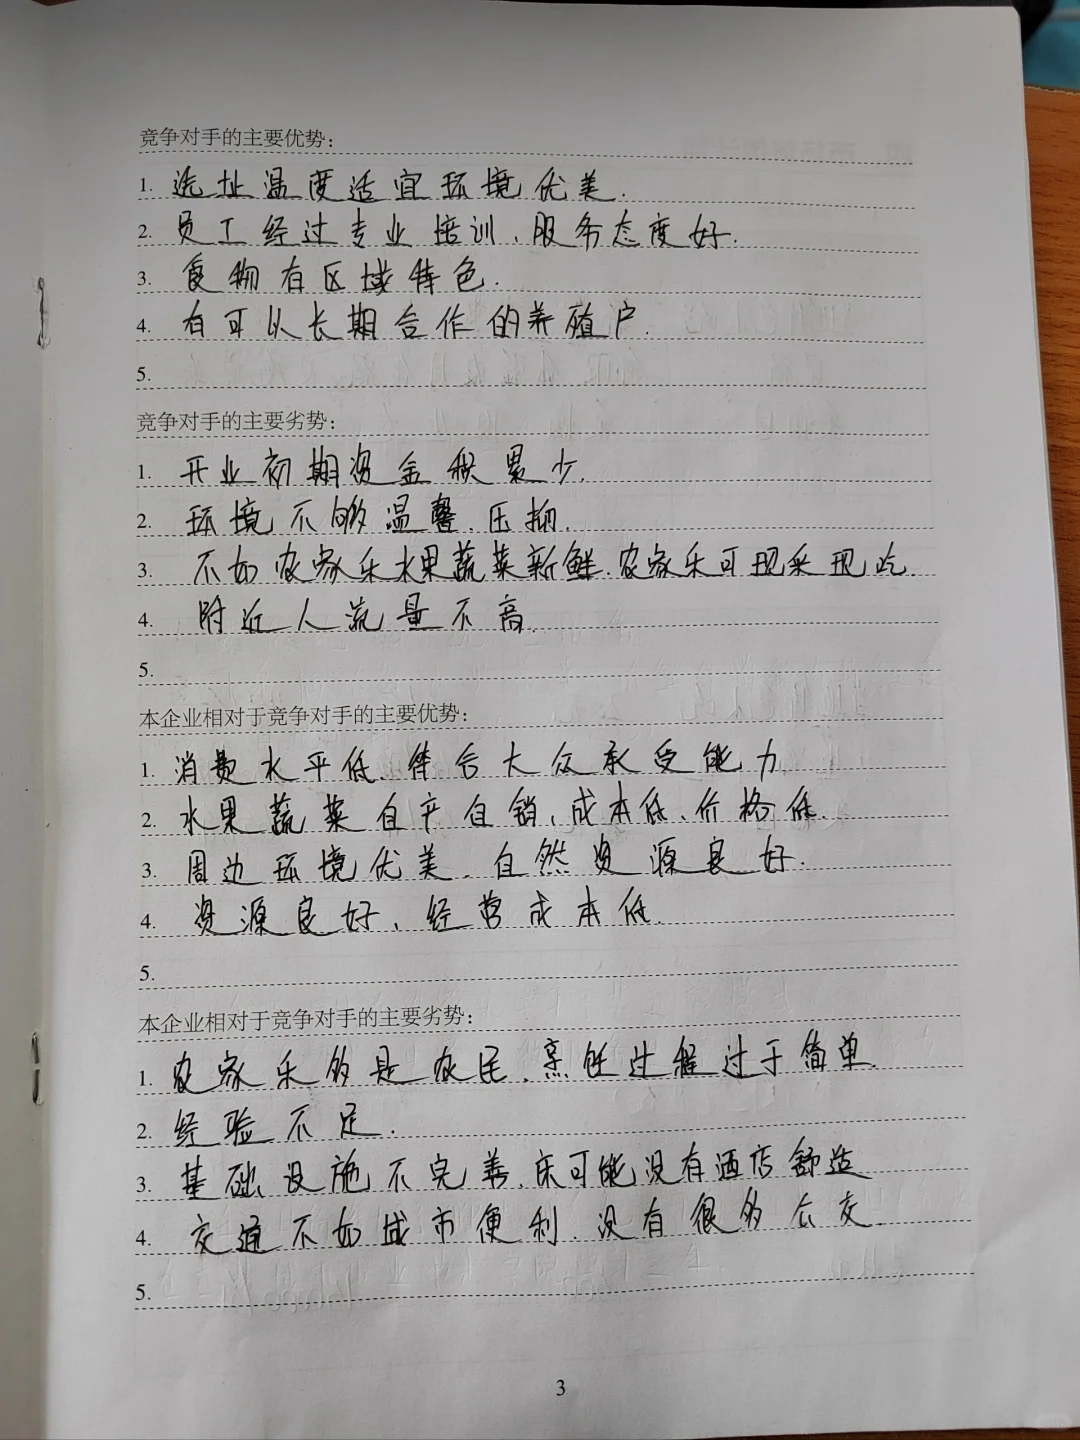 竞争对手的主要优势：
1. 选址温度适宜环境优美.
2. 员工经过专业培训、服务态度好.
3. 食物有区域特色.
4. 有可以长期合作的养殖户.
5.
竞争对手的主要劣势：
1. 开业初期资金积累少.
2. 环境不够温馨.压抑.
3. 不如农家乐水果蔬菜新鲜.农家乐可现采现吃.
4. 附近人流量不高.
5.
本企业相对于竞争对手的主要优势：
1. 消费水平低.符合大众承受能力
2. 水果蔬菜自产自销、成本低、价格低.
3. 周边环境优美.自然资源良好.
4. 资源良好、经营成本低.
5.
本企业相对于竞争对手的主要劣势：
1. 农家乐多是农民.烹饪过程过于简单.
2. 经验不足.
3. 基础设施不完善.床可能没有酒店舒适
4. 交通不如城市便利.没有很多公交.
5.
3